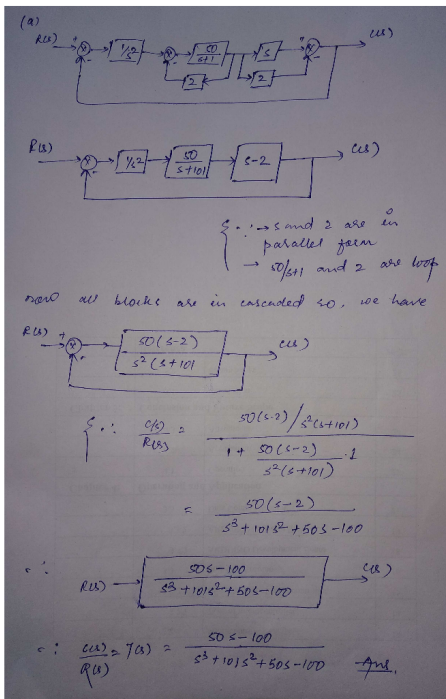 (a)
R(s) + - 1/s² - 50/s+1 s + - C(s)
2 2
R(s) - 1/s² 50/s+101 s-2 C(s)
{ ∵ → s and 2 are in
parallel form
→ 50/s+1 and 2 are loop
now all blocks are in cascaded so, we have
R(s) + - 50(s-2)/s²(s+101 C(s)
{ ∵ C(s)/R(s) = 50(s-2)/s²(s+101) / 1+ 50(s-2)/s²(s+101) .1
= 50(s-2)/s³+101s²+50s-100
∴ R(s) 50s-100/s³+101s²+50s-100 C(s)
∴ C(s)/R(s) = T(s) = 50s-100/s³+101s²+50s-100 Ans.